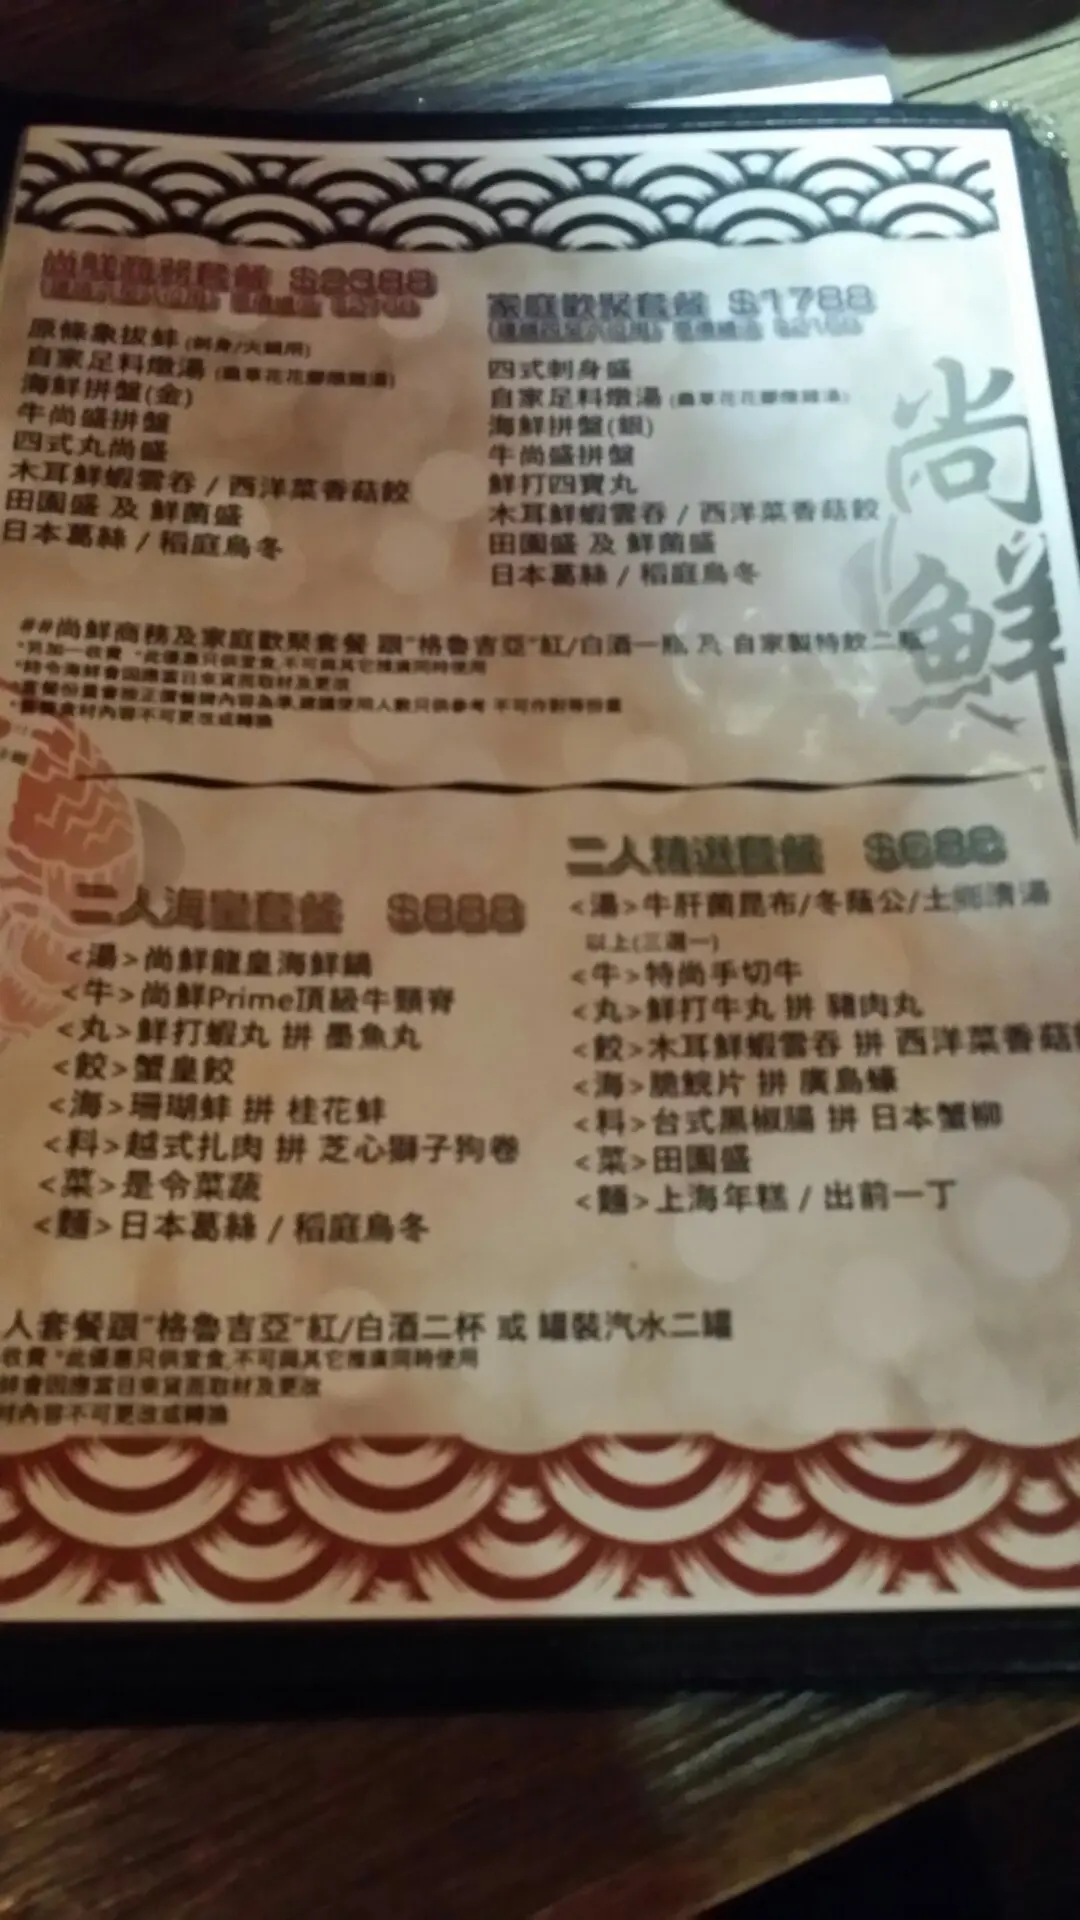 尚鮮商務套餐 $2388
原條象拔蚌 (刺身/火鍋用)
自家足料燉湯 (蟲草花花膠燉雞湯)
海鮮拼盤(金)
牛尚盛拼盤
四式丸尚盛
木耳鮮蝦雲吞 / 西洋菜香菇餃
田園盛 及 鮮菌盛
日本葛絲 / 稻庭烏冬
家庭歡聚套餐 $1788
四式刺身盛
自家足料燉湯 (蟲草花花膠燉雞湯)
海鮮拼盤(銀)
牛尚盛拼盤
鮮打四寶丸
木耳鮮蝦雲吞 / 西洋菜香菇餃
田園盛 及 鮮菌盛
日本葛絲 / 稻庭烏冬
尚鮮
##尚鮮商務及家庭歡聚套餐 跟"格魯吉亞"紅/白酒一瓶 及 自家製特飲二瓶
*另加一收費 *此優惠只供堂食,不可與其它推廣同時使用
*時令海鮮會因應當日來貨而取材及更改
*套餐份量會按正價餐牌內容為準,建議使用人數只供參考 不可作對等份量
*套餐食材內容不可更改或轉換
二人海皇套餐 $888
<湯>尚鮮龍皇海鮮鍋
<牛>尚鮮Prime頂級牛頸脊
<丸>鮮打蝦丸 拼 墨魚丸
<餃>蟹皇餃
<海>珊瑚蚌 拼 桂花蚌
<料>越式扎肉 拼 芝心獅子狗卷
<菜>是令菜蔬
<麵>日本葛絲 / 稻庭烏冬
二人精選套餐 $688
<湯>牛肝菌昆布/冬蔭公/土鄉清湯
以上(三選一)
<牛>特尚手切牛
<丸>鮮打牛丸 拼 豬肉丸
<餃>木耳鮮蝦雲吞 拼 西洋菜香菇
<海>脆鯇片 拼 廣島蠔
<料>台式黑椒腸 拼 日本蟹柳
<菜>田園盛
<麵>上海年糕 / 出前一丁
人套餐跟"格魯吉亞"紅/白酒二杯 或 罐裝汽水二罐
收費 *此優惠只供堂食,不可與其它推廣同時使用
鮮會因應當日來貨而取材及更改
材內容不可更改或轉換